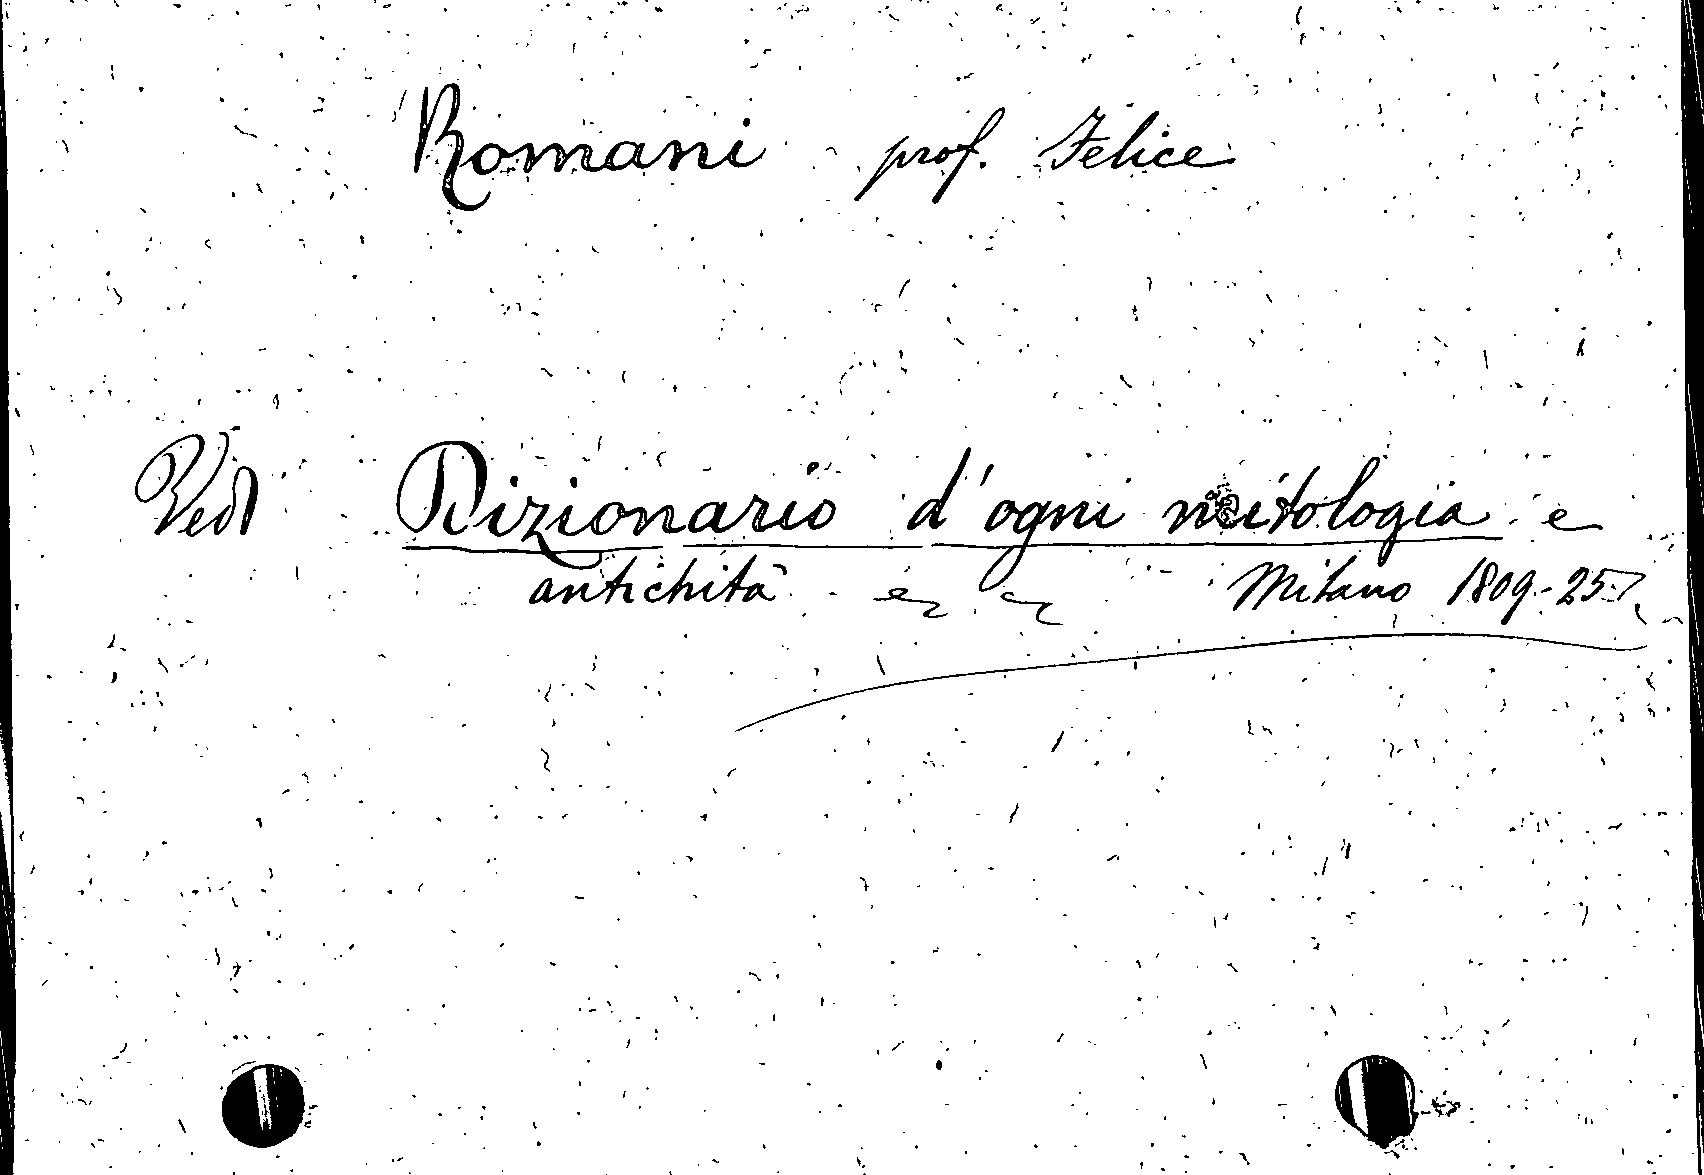 Romani prof. Felice
Vedi Dizionario d'ogni mitologia e
antichità Milano 1809-25